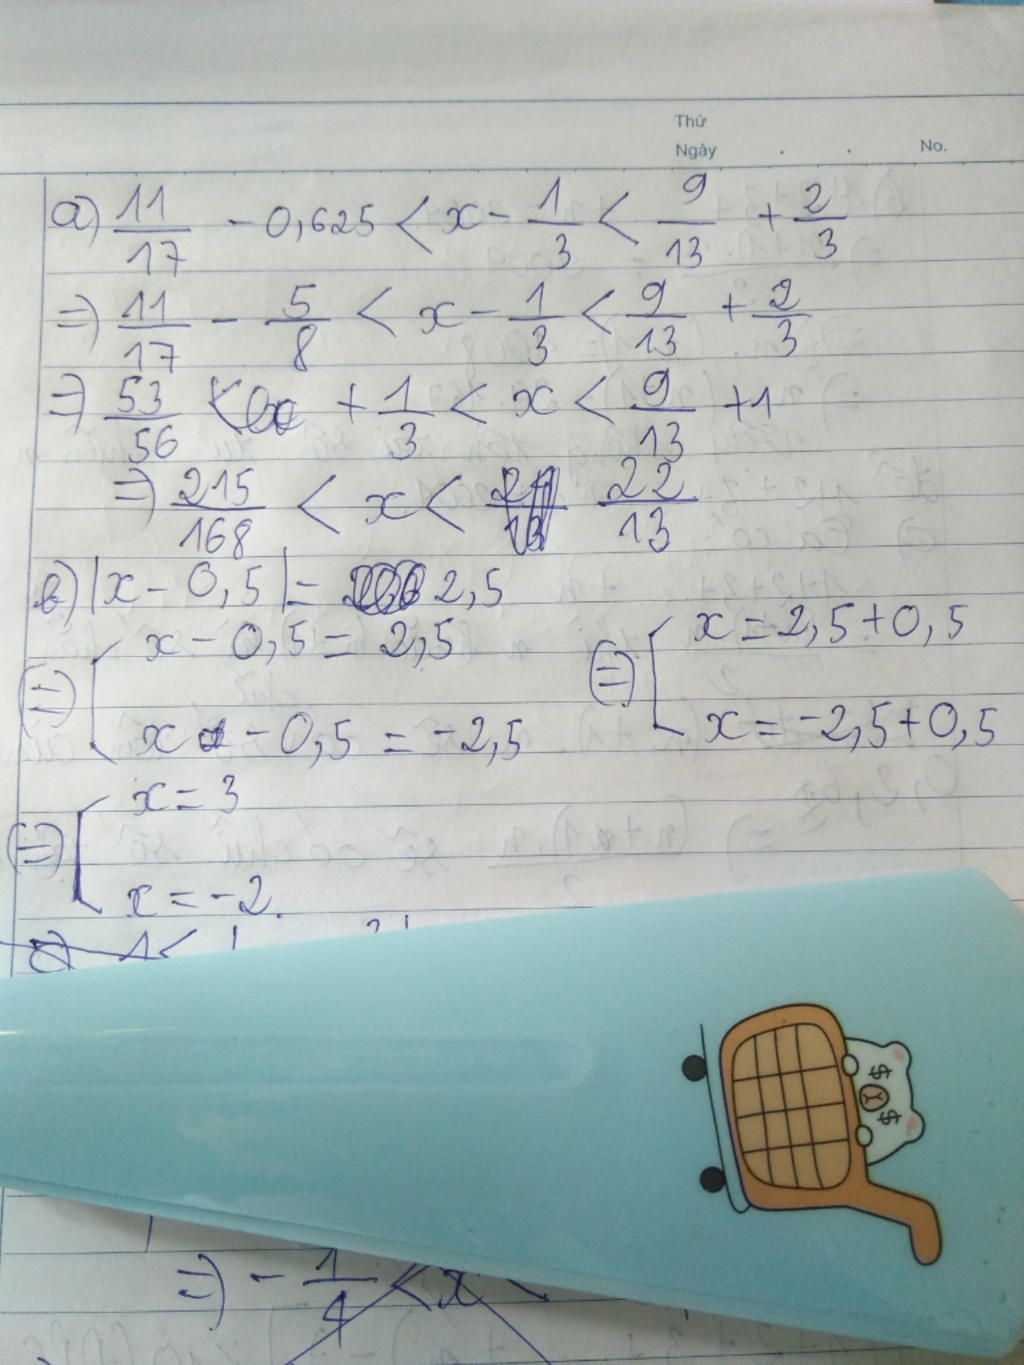 Thứ
Ngày . . No.
a) 11/17 - 0,625 < x - 1/3 < 9/13 + 2/3
=) 11/17 - 5/8 < x - 1/3 < 9/13 + 2/3
=) 53/56 < + 1/3 < x < 9/13 + 1
=) 215/168 < x < 22/13
b) |x - 0,5| = 2,5
(=) [ x - 0,5 = 2,5 (=) [ x = 2,5 + 0,5
x - 0,5 = -2,5 x = -2,5 + 0,5
(=) [ x = 3
x = -2.
=) - 1/4 < x <